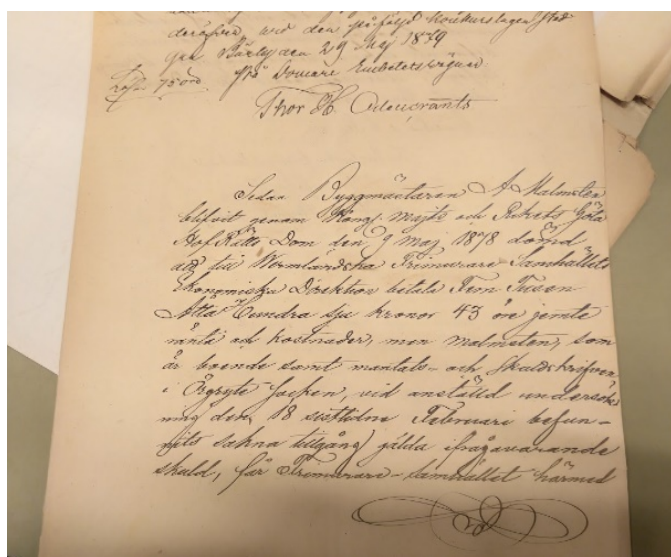 deröfver, med den påföljd Konkurslagen stad-
gar Särby den 29 Maj 1879
Lösen 75 öre. På Domare Embetets vägnar
Thor H. Odencrants
Sedan Byggmästaren A Malmsten
blifvit genom Kongl. Majts och Rikets Göta
Hof Rätts Dom den 9 maj 1878 dömd
att till Wermländska Frimurare Samhällets
Ekonomiska Direktion betala Fem Tusen
Åtta Hundra sju kronor 43 öre jemte
ränta och kostnader, men Malmsten, som
är boende samt mantals- och skattskrifven
i Örgryte socken, vid anstäld undersök
ning den 18 sistlidne Februari befun-
nits sakna tillgång gälda ifrågavarande
skuld, får Frimurare-samhället härmed